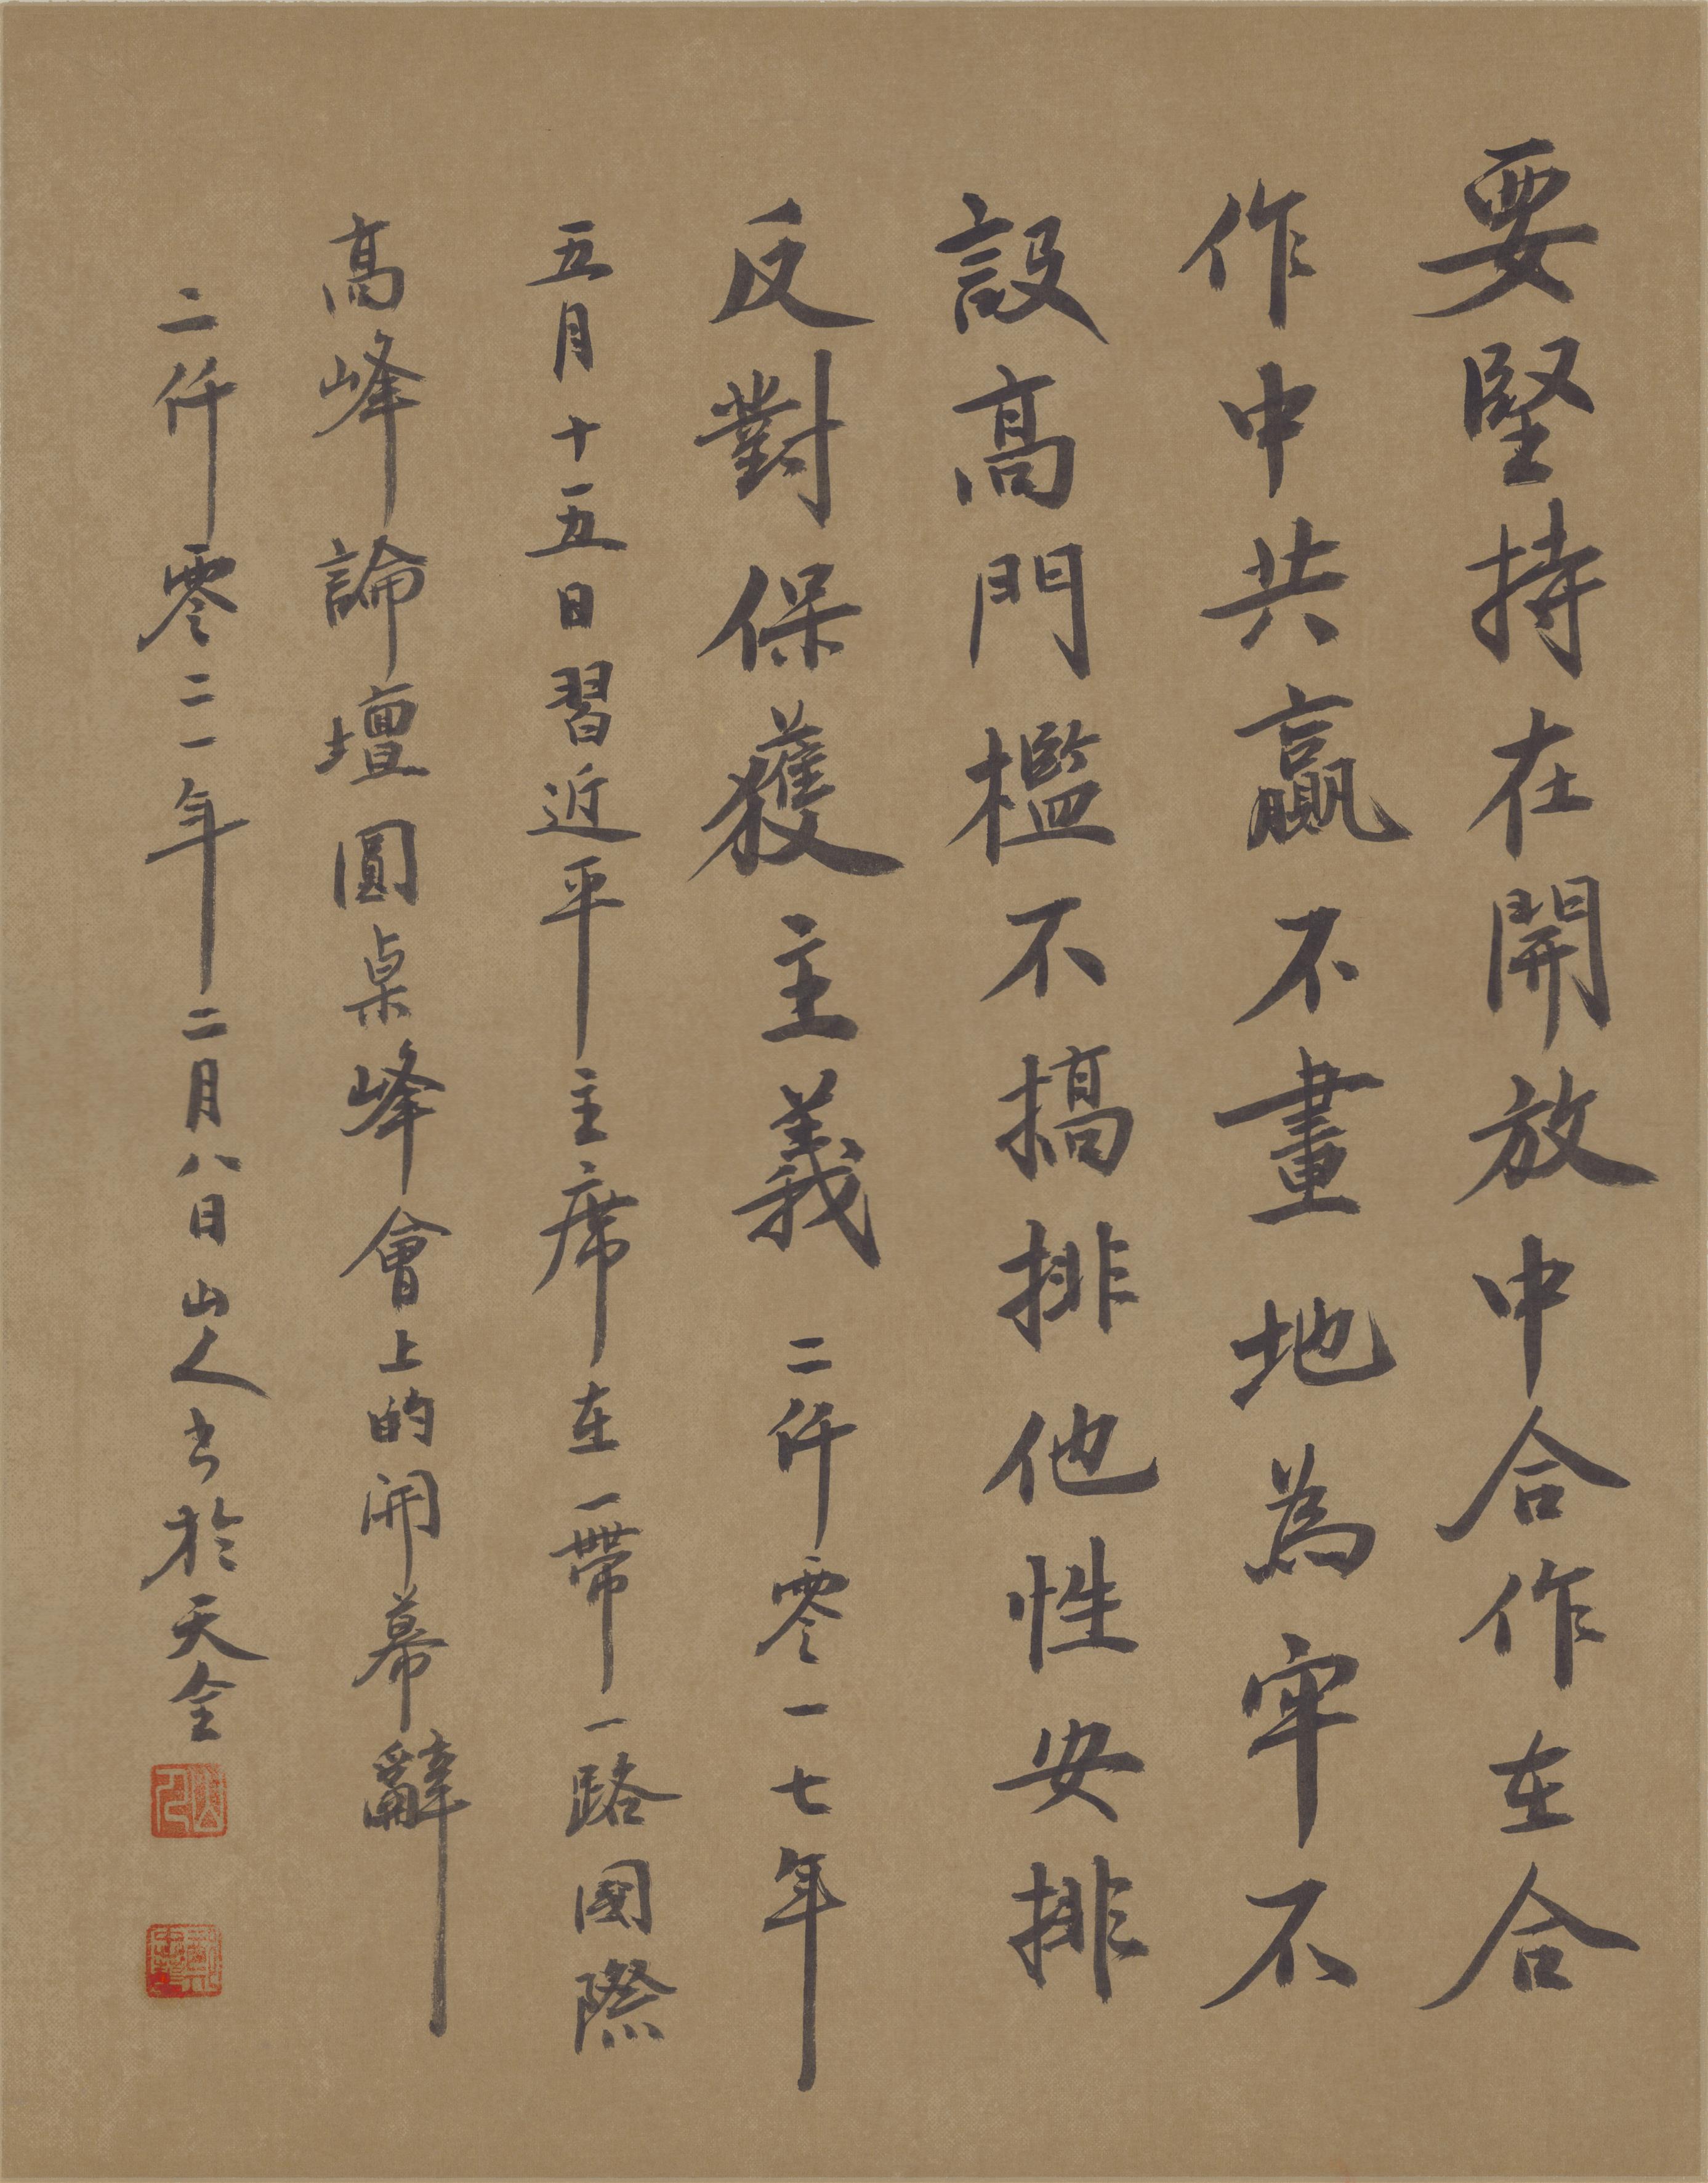 要堅持在開放中合作在合
作中共贏不畫地為牢不
設高門檻不搞排他性安排
反對保獲主義 二仟零一七年
五月十五日習近平主席在一帶一路國際
高峰論壇圓桌峰會上的開幕辭
二仟零二一年二月八日山人书於天全